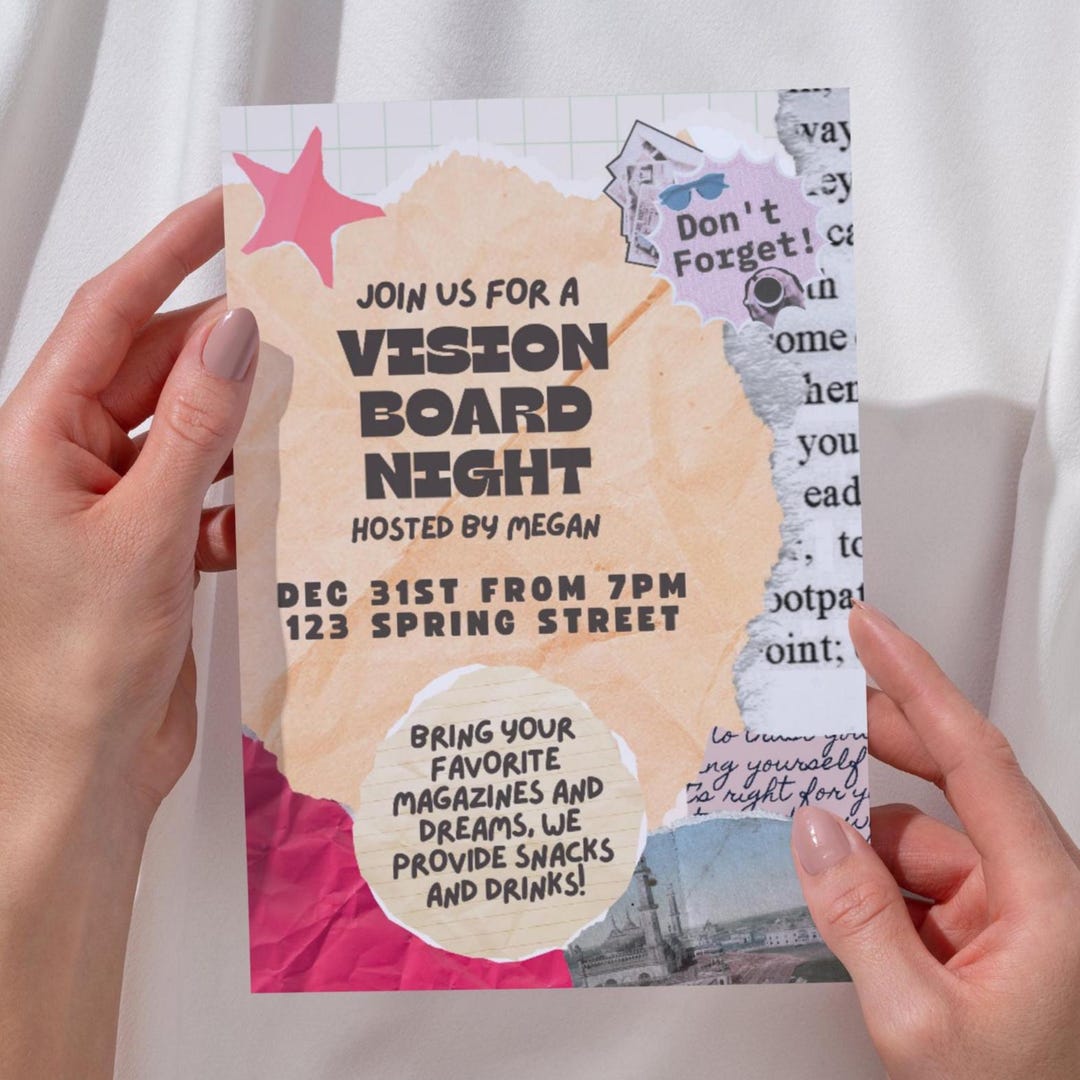 Don't
Forget!
JOIN US FOR A
VISION
BOARD
NIGHT
HOSTED BY MEGAN
DEC 31ST FROM 7PM
123 SPRING STREET
BRING YOUR
FAVORITE
MAGAZINES AND
DREAMS, WE
PROVIDE SNACKS
AND DRINKS!
way
ey
ca
in
ome
her
you
ead
; to
ootpat
oint;
ng yourself
right for y